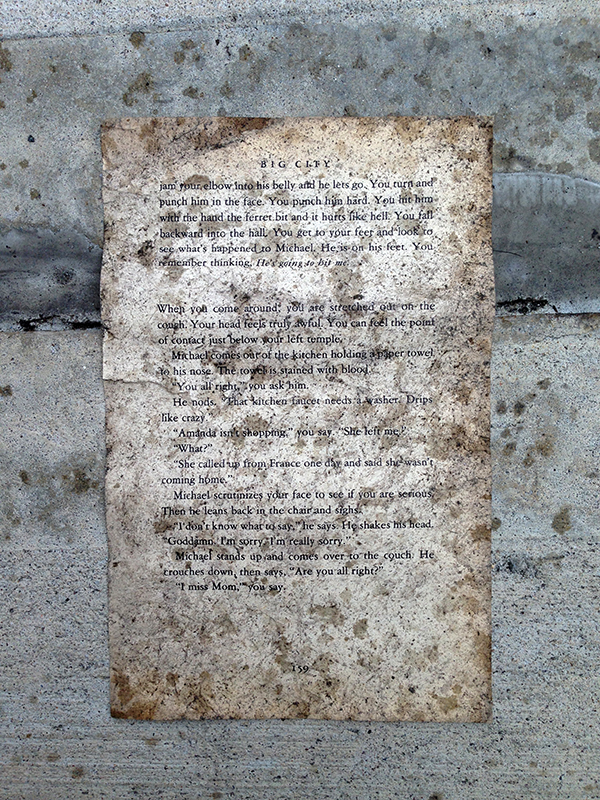 BIG CITY
jam your elbow into his belly and he lets go. You turn and
punch him in the face. You punch him hard. You hit him
with the hand the ferret bit and it hurts like hell. You fall
backward into the hall. You get to your feet and look to
see what's happened to Michael. He is on his feet. You
remember thinking, He's going to hit me.
When you come around, you are stretched out on the
couch. Your head feels truly awful. You can feel the point
of contact just below your left temple.
Michael comes out of the kitchen holding a paper towel
to his nose. The towel is stained with blood.
"You all right," you ask him.
He nods. "That kitchen faucet needs a washer. Drips
like crazy."
"Amanda isn't shopping," you say. "She left me."
"What?"
"She called up from France one day and said she wasn't
coming home."
Michael scrutinizes your face to see if you are serious.
Then he leans back in the chair and sighs.
"I don't know what to say," he says. He shakes his head.
"Goddamn. I'm sorry. I'm really sorry."
Michael stands up and comes over to the couch. He
crouches down, then says, "Are you all right?"
"I miss Mom," you say.
159